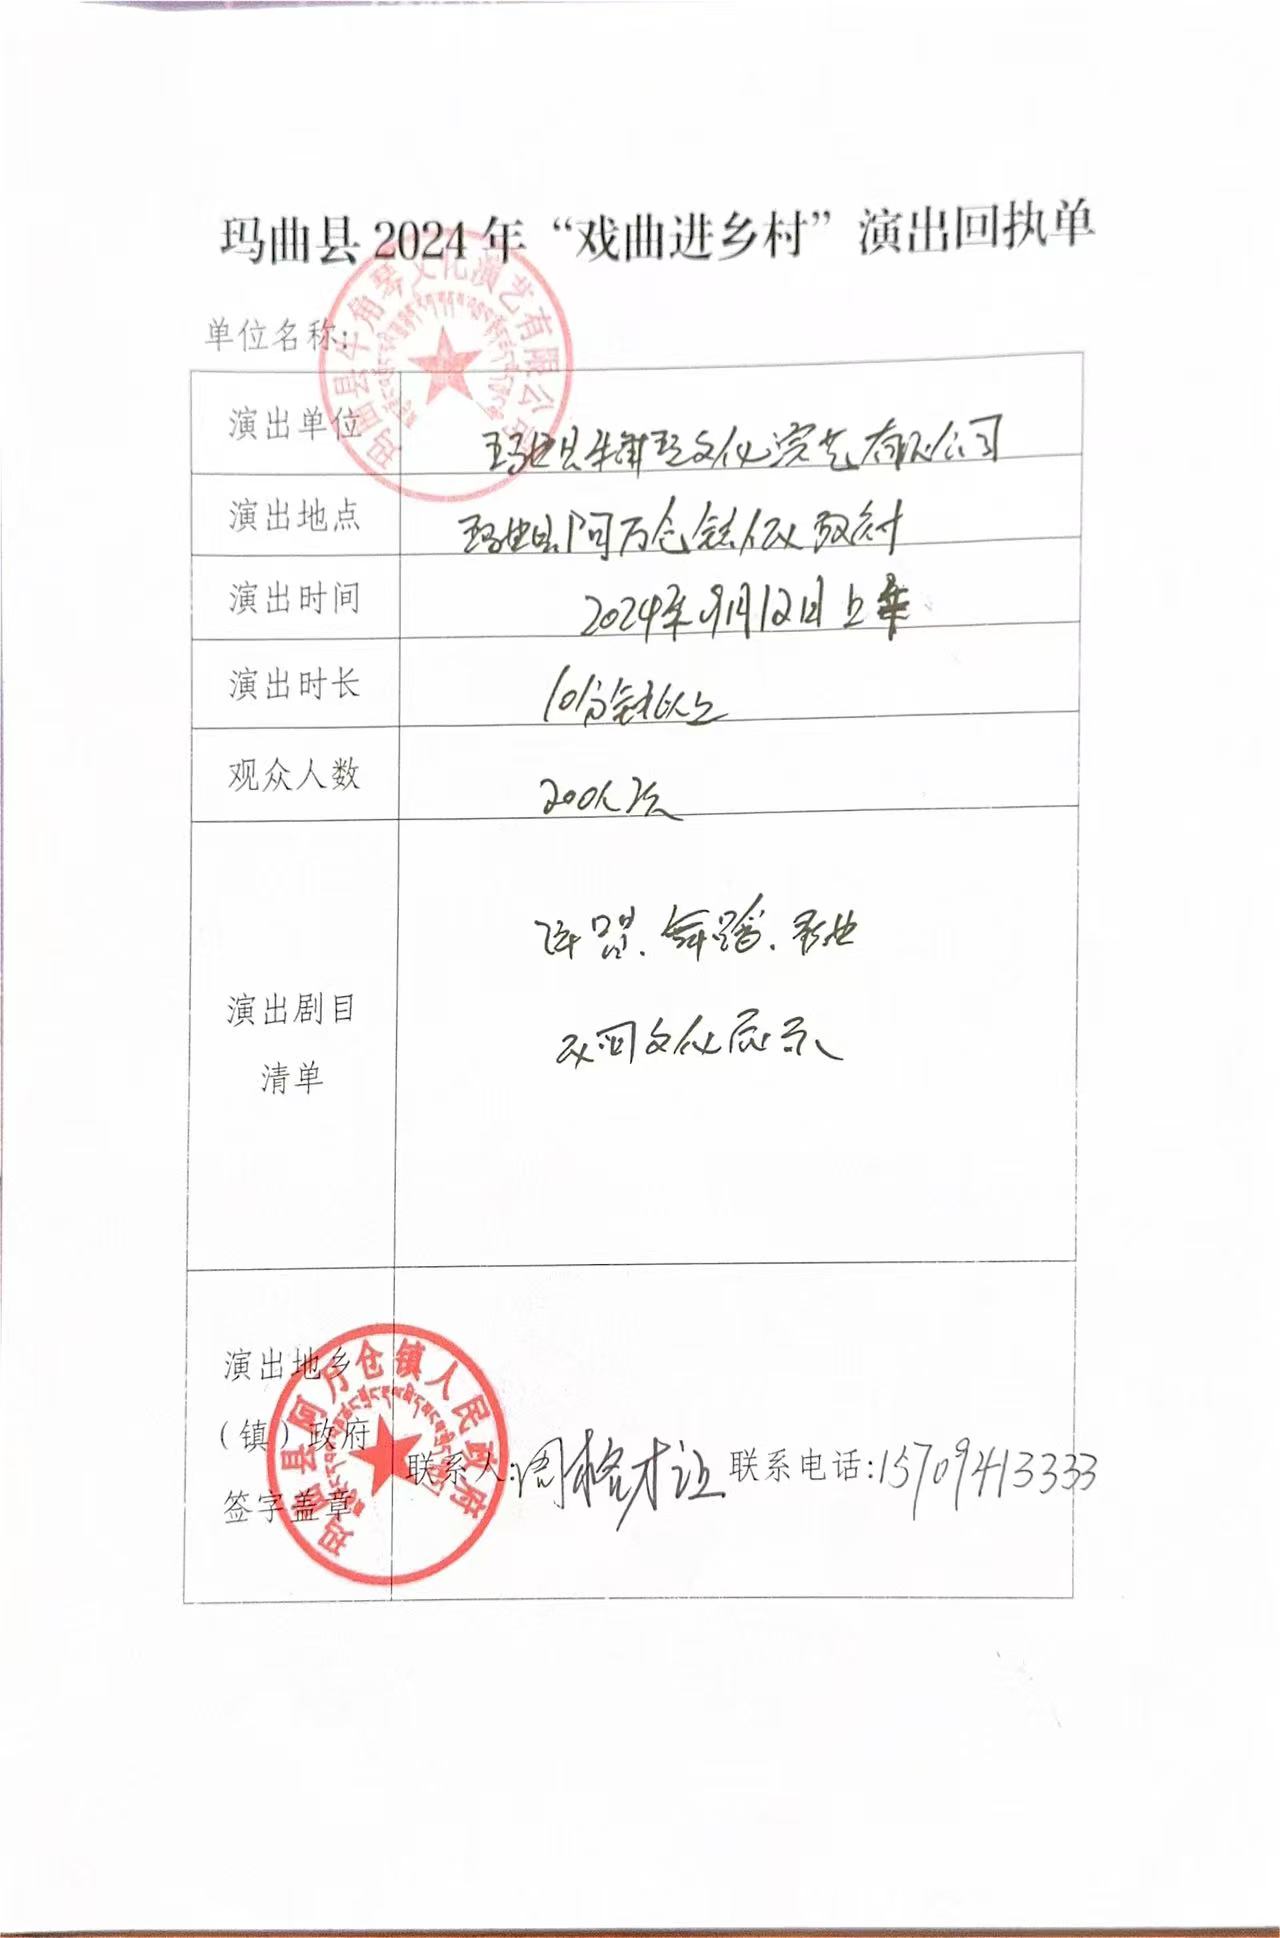 玛曲县 2024 年“戏曲进乡村”演出回执单
单位名称:
玛曲县牛角琴文化演艺有限公司
演出单位
玛曲县牛角琴文化演艺有限公司
演出地点
玛曲县阿万仓镇
演出时间
2024年9月12日上午
演出时长
分钟以上
观众人数
200人次
演出剧目
清单
舞蹈、歌曲
文化展示
演出地乡
(镇)政府
签字盖章
玛曲县阿万仓镇人民政府
联系人: 联系电话:15709413333